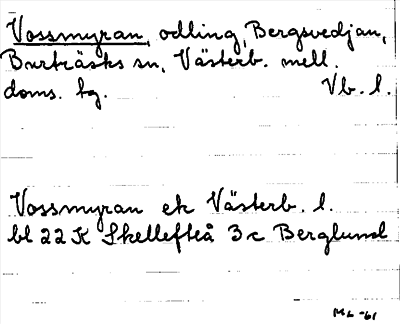 Vossmyran, odling, Bergsvedjan,
Burträsks sn, Västerb. mell.
doms. tg. Vb. l.
Vossmyran ek Västerb. l.
bl 22 K Skellefteå 3 c Berglund
ML -61